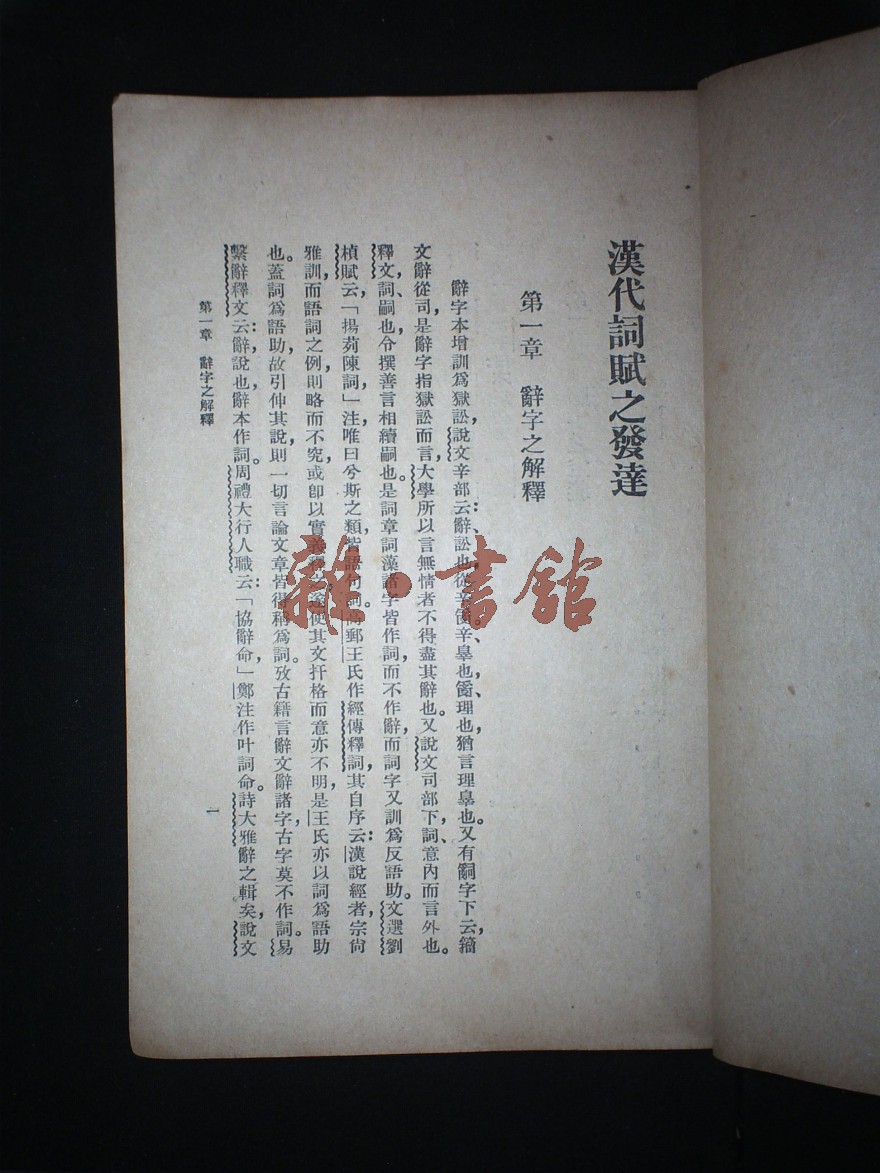 漢代詞賦之發達
第一章 辭字之解釋
辭字本增訓爲獄訟，說文辛部云：辭、訟也，從𤔔辛。𤔔辛、辠也，𤔔、理也，猶言理辠也。又有嗣字下云，籀
文辭從司，是辭字指獄訟而言，大學所以言無情者不得盡其辭也。又說文司部下，詞、意內而言外也。
釋文，詞、嗣也，令撰善言相續嗣也。是詞章詞藻諸字皆作詞，而不作辭，而詞字又訓爲反語助。文選劉
楨賦云「揚荊陳詞」注唯曰兮斯之類，皆語句詞。高郵王氏作經傳釋詞，其自序云：漢說經者，宗尙
雅訓，而語詞之例，則略而不究，或卽以實義釋之，遂使其文扞格而意亦不明，是王氏亦以詞爲語助
也。蓋詞爲語助，故引伸其說，則一切言論文章皆得稱爲詞。攷古籍言辭文辭諸字，古字莫不作詞。易
繫辭釋文云：辭，說也，辭本作詞。周禮大行人職云：「協辭命，」鄭注作叶詞命。詩大雅辭之輯矣，說文
第一章 辭字之解釋
一
雜·書館